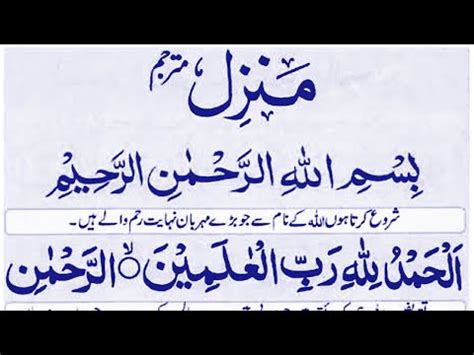 مَنزِل مترجم
بِسْمِ اللهِ الرَّحْمٰنِ الرَّحِیْمِ
شروع کرتا ہوں اللہ کے نام سے جو بڑے مہربان نہایت رحم والے ہیں۔
اَلْحَمْدُ لِلّٰهِ رَبِّ الْعٰلَمِیْنَ الرَّحْمٰنِ